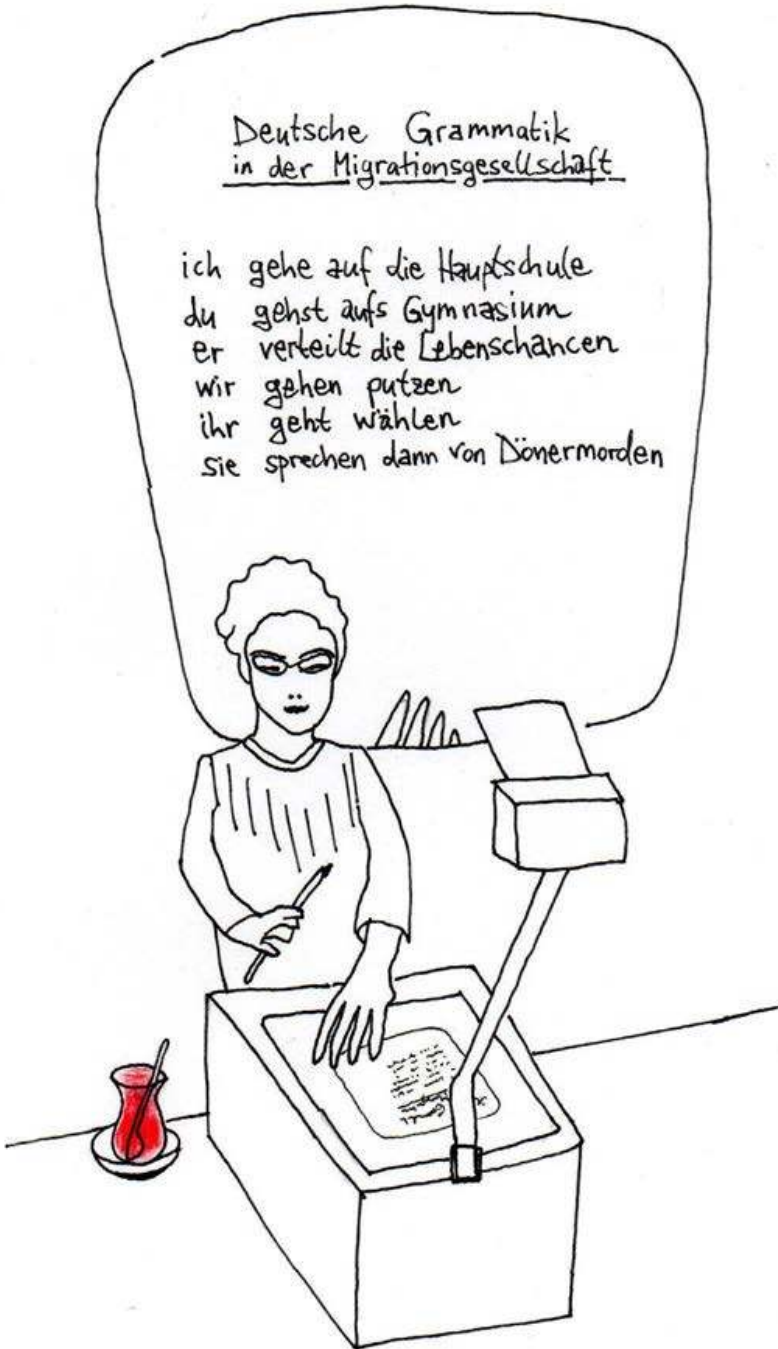 Deutsche Grammatik
in der Migrationsgesellschaft
ich gehe auf die Hauptschule
du gehst aufs Gymnasium
er verteilt die Lebenschancen
wir gehen putzen
ihr geht wählen
sie sprechen dann von Dönermorden